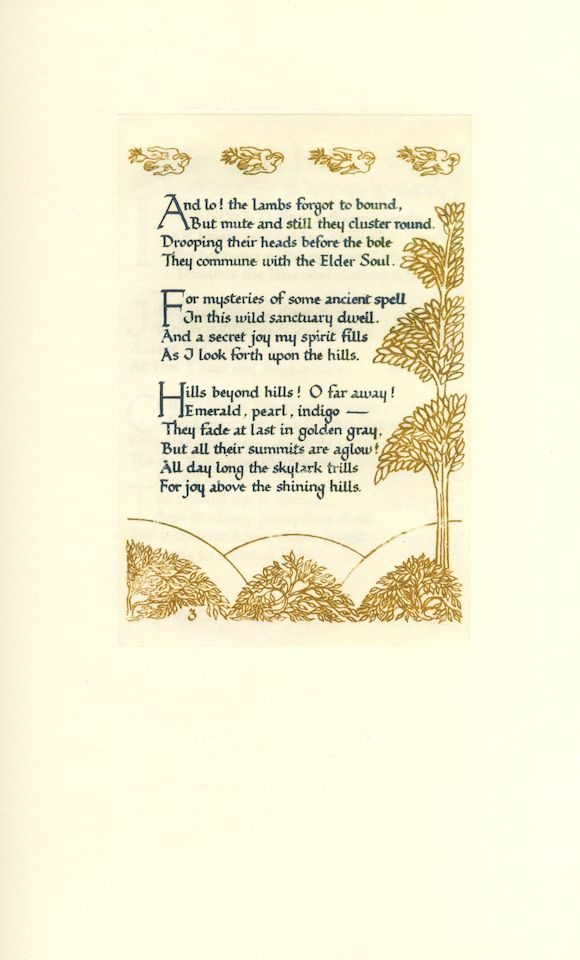 And lo! the lambs forgot to bound,
But mute and still they cluster round.
Drooping their heads before the bole
They commune with the Elder Soul.
For mysteries of some ancient spell
In this wild sanctuary dwell.
And a secret joy my spirit fills
As I look forth upon the hills.
Hills beyond hills! O far away!
Emerald, pearl, indigo —
They fade at last in golden gray,
But all their summits are aglow!
All day long the skylark trills
For joy above the shining hills.
3